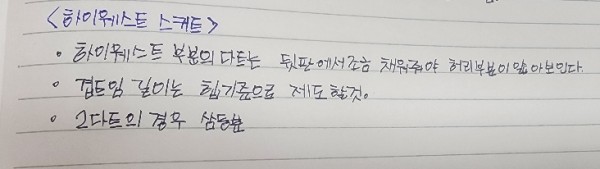 <하이웨스트 스커트>
• 하이웨스트 부분의 다트는 뒷판에서 조금 채워줘야 허리부분이 맞아보인다.
• 겹트임 길이는 힙기준으로 제도할것.
• 2다트의 경우 삼등분